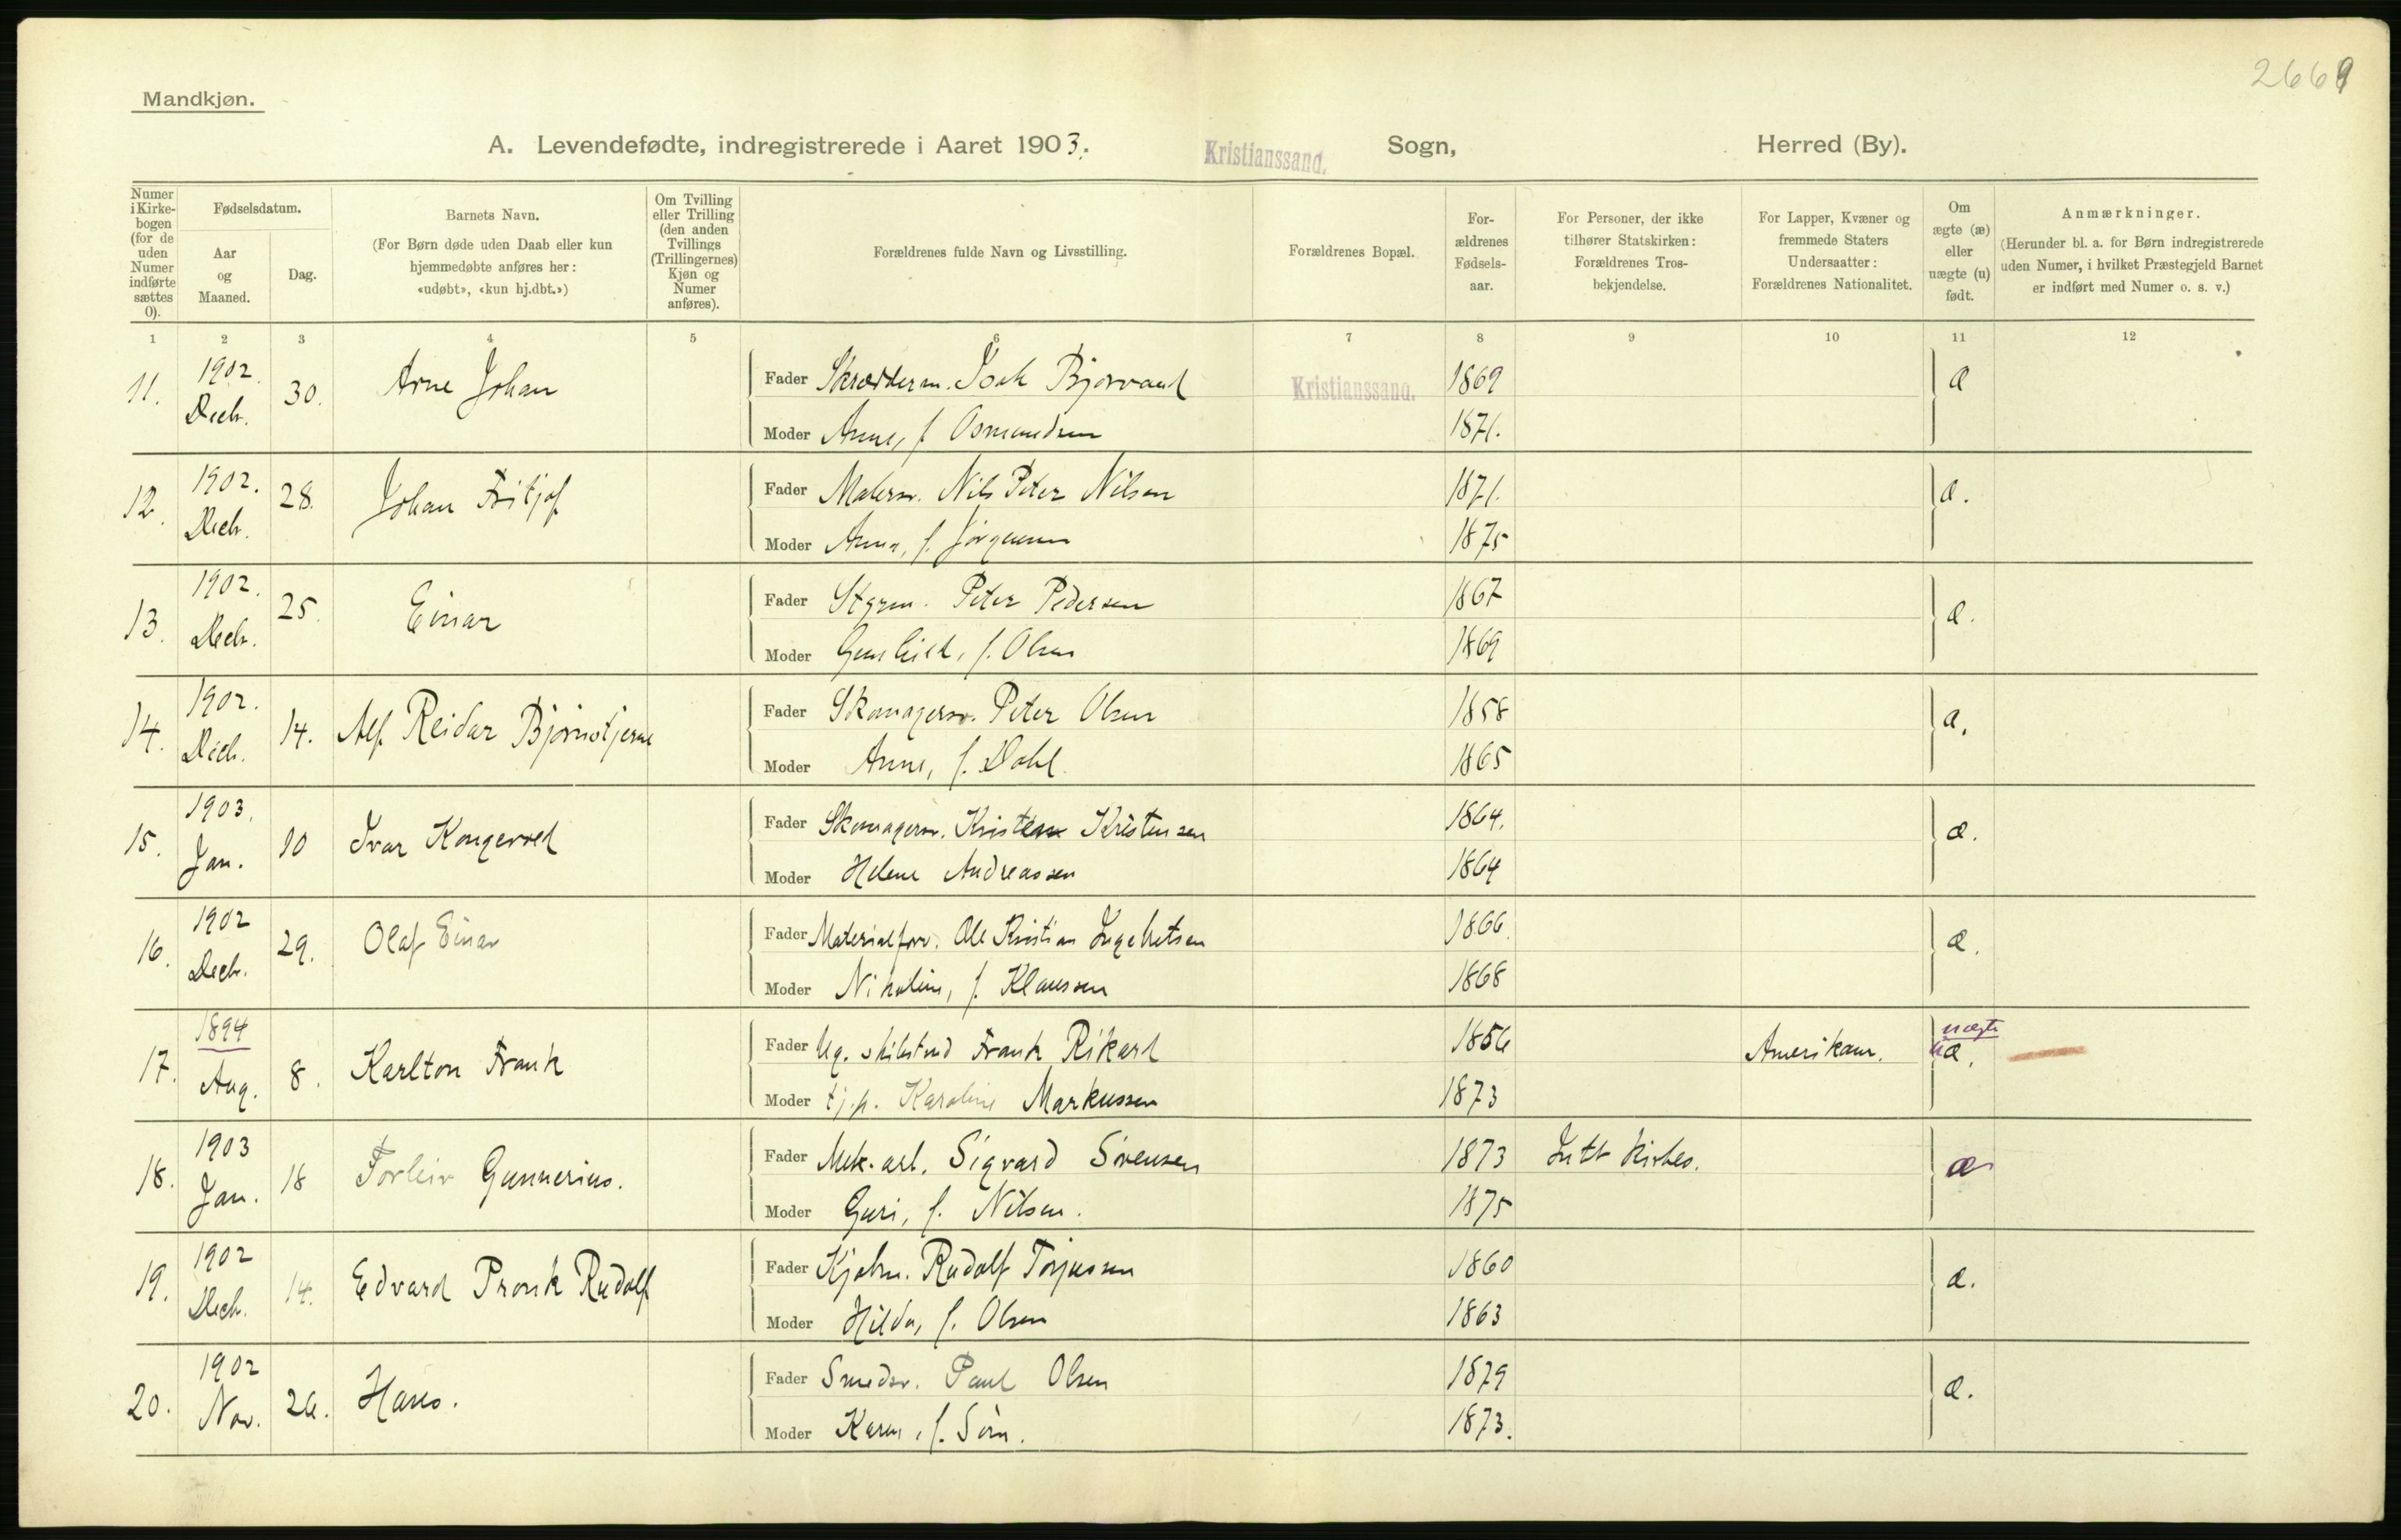 2669
Mandkjøn.
A. Levendefødte, indregistrerede i Aaret 1903. Kristianssand. Sogn, Herred (By).
Numer i Kirkebogen (for de uden Numer indførte sættes 0).
Fødselsdatum.
Aar og Maaned.
Dag.
Barnets Navn.
(For Børn døde uden Daab eller kun
hjemmedøbte anføres her:
«udøbt», «kun hj.dbt.»)
Om Tvilling
eller Trilling
(den anden
Tvillings
(Trillingernes)
Kjøn og
Numer
anføres).
Forældrenes fulde Navn og Livsstilling.
Forældrenes Bopæl.
For-
ældrenes
Fødsels-
aar.
For Personer, der ikke
tilhører Statskirken:
Forældrenes Tros-
bekjendelse.
For Lapper, Kvæner og
fremmede Staters
Undersaatter:
Forældrenes Nationalitet.
Om
ægte (æ)
eller
uægte (u)
født.
Anmærkninger.
(Herunder bl. a. for Børn indregistrerede
uden Numer, i hvilket Præstegjeld Barnet
er indført med Numer o. s. v.)
1 2 3 4 5 6 7 8 9 10 11 12
11. 1902. Decb. 30. Arne Johan Fader Skræderm. Isak Bjorvand Kristianssand. 1869 æ
Moder Anne, f. Osmundsen 1871.
12. 1902. Decb. 28. Johan Fritjof Fader Malersv. Nils Peter Nilsen 1871. æ.
Moder Anna, f. Jörgensen 1875
13. 1902. Decb. 25. Einar Fader Styrm. Peter Pedersen 1867 æ.
Moder Gunhild, f. Olsen 1869
14. 1902. Decb. 14. Alf Reidar Bjørnstjerne Fader Skomagersv. Peter Olsen 1858 æ.
Moder Anne, f. Dahl. 1865
15. 1903. Jan. 10 Ivar Kongevold Fader Skomagerm. Kristen Kristensen 1864. æ.
Moder Helene Andreassen 1864
16. 1902 Decb. 29. Olaf Einar Fader Materialforv. Ole Kristian Ingebretsen 1866. æ.
Moder Nikoline, f. Klaussen 1868
17. 1894 Aug. 8. Karlton Frank Fader Ug. Frank Rikard 1856 Amerikaner. uægte æ.
Moder tj.p. Karoline Markussen 1873
18. 1903 Jan. 18 Torleiv Gunnerius. Fader Mek. arb. Sigvard Sörensen 1873 Luth. Kirkes. æ
Moder Guri, f. Nilsen. 1875
19. 1902 Decb. 14. Edvard Pronk Rudolf Fader Kjøbm. Rudolf Torjussen 1860 æ.
Moder Hilda, f. Olsen 1863
20. 1902 Nov. 26. Hans. Fader Smedsv. Paul Olsen 1879 æ.
Moder Karen, f. 1873.